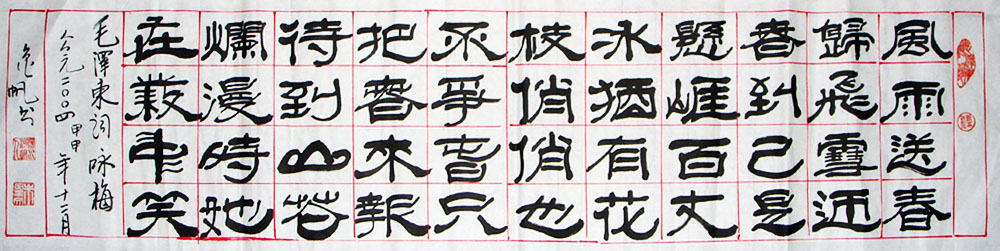 風雨送春
歸飛雪迎
春到已是
懸崖百丈
冰猶有花
枝俏俏也
不爭春只
把春來報
待到山花
爛漫時她
在叢中笑
毛澤東詞咏梅
公元二〇〇四甲申年十二月
帆书